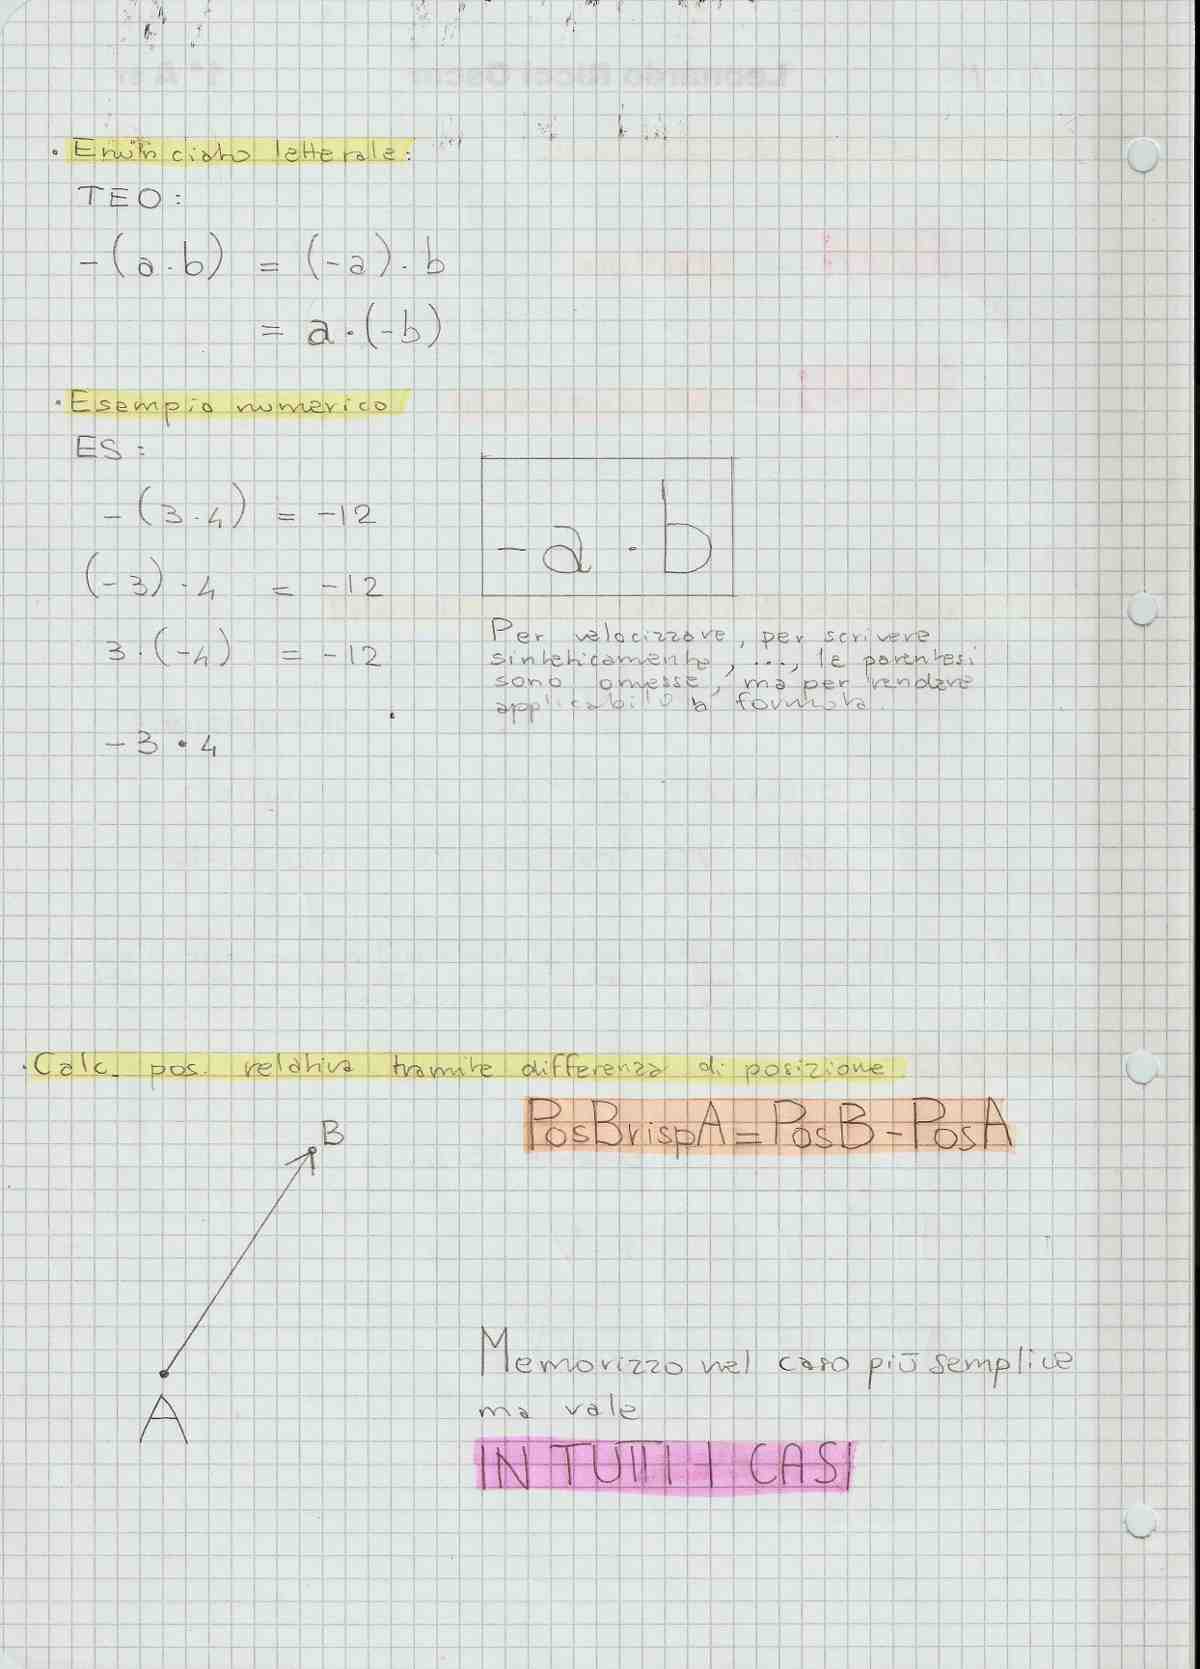 • Enunciato letterale:
TEO:
-(a·b) = (-a)·b
= a·(-b)
• Esempio numerico
ES:
-(3·4) = -12
(-3)·4 = -12
3·(-4) = -12
-3·4
-a·b
Per velocizzare, per scrivere
sinteticamente, ..., le parentesi
sono omesse, ma per rendere
applicabile la formula.
• Calc. pos. relativa tramite differenza di posizione.
PosBrispA = PosB - PosA
B
A
Memorizzo nel caso più semplice
ma vale
IN TUTTI I CASI